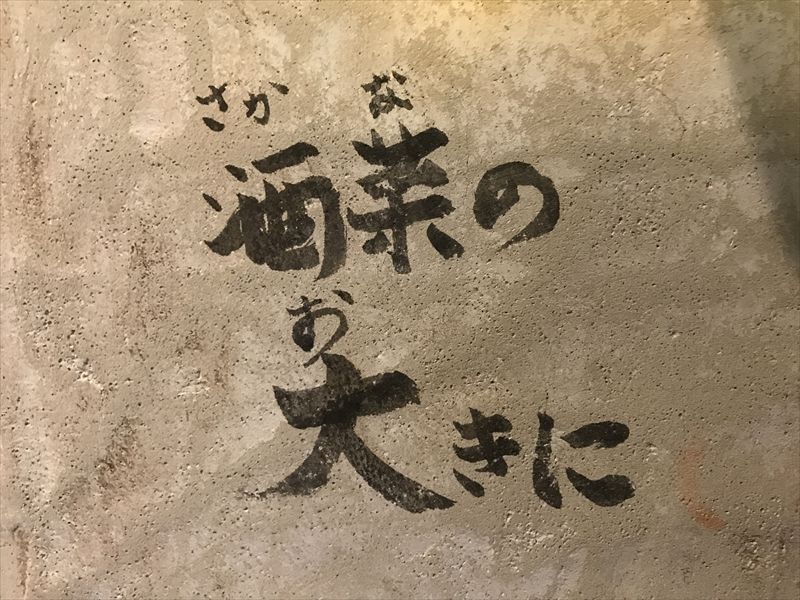 さか な
酒菜の
お
大きに